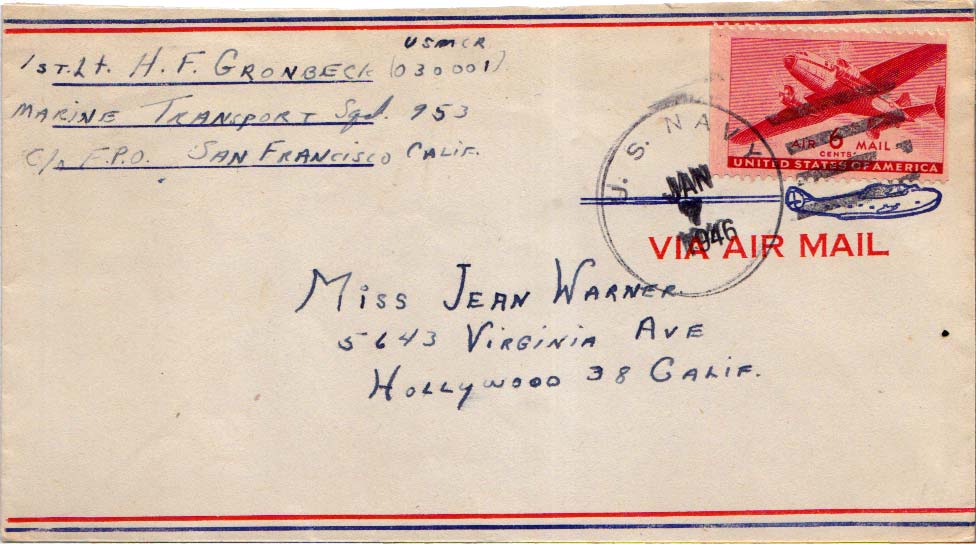 USMCR
1ST. Lt. H. F. GRONBECK (030001)
MARINE TRANSPORT Sqd. 953
C/o F.P.O. SAN FRANCISCO CALIF.
U.S. NAVY
JAN
7
1946
AIR 6 MAIL
CENTS
UNITED STATES OF AMERICA
VIA AIR MAIL
MISS JEAN WARNER
5643 VIRGINIA AVE
HOLLYWOOD 38 CALIF.